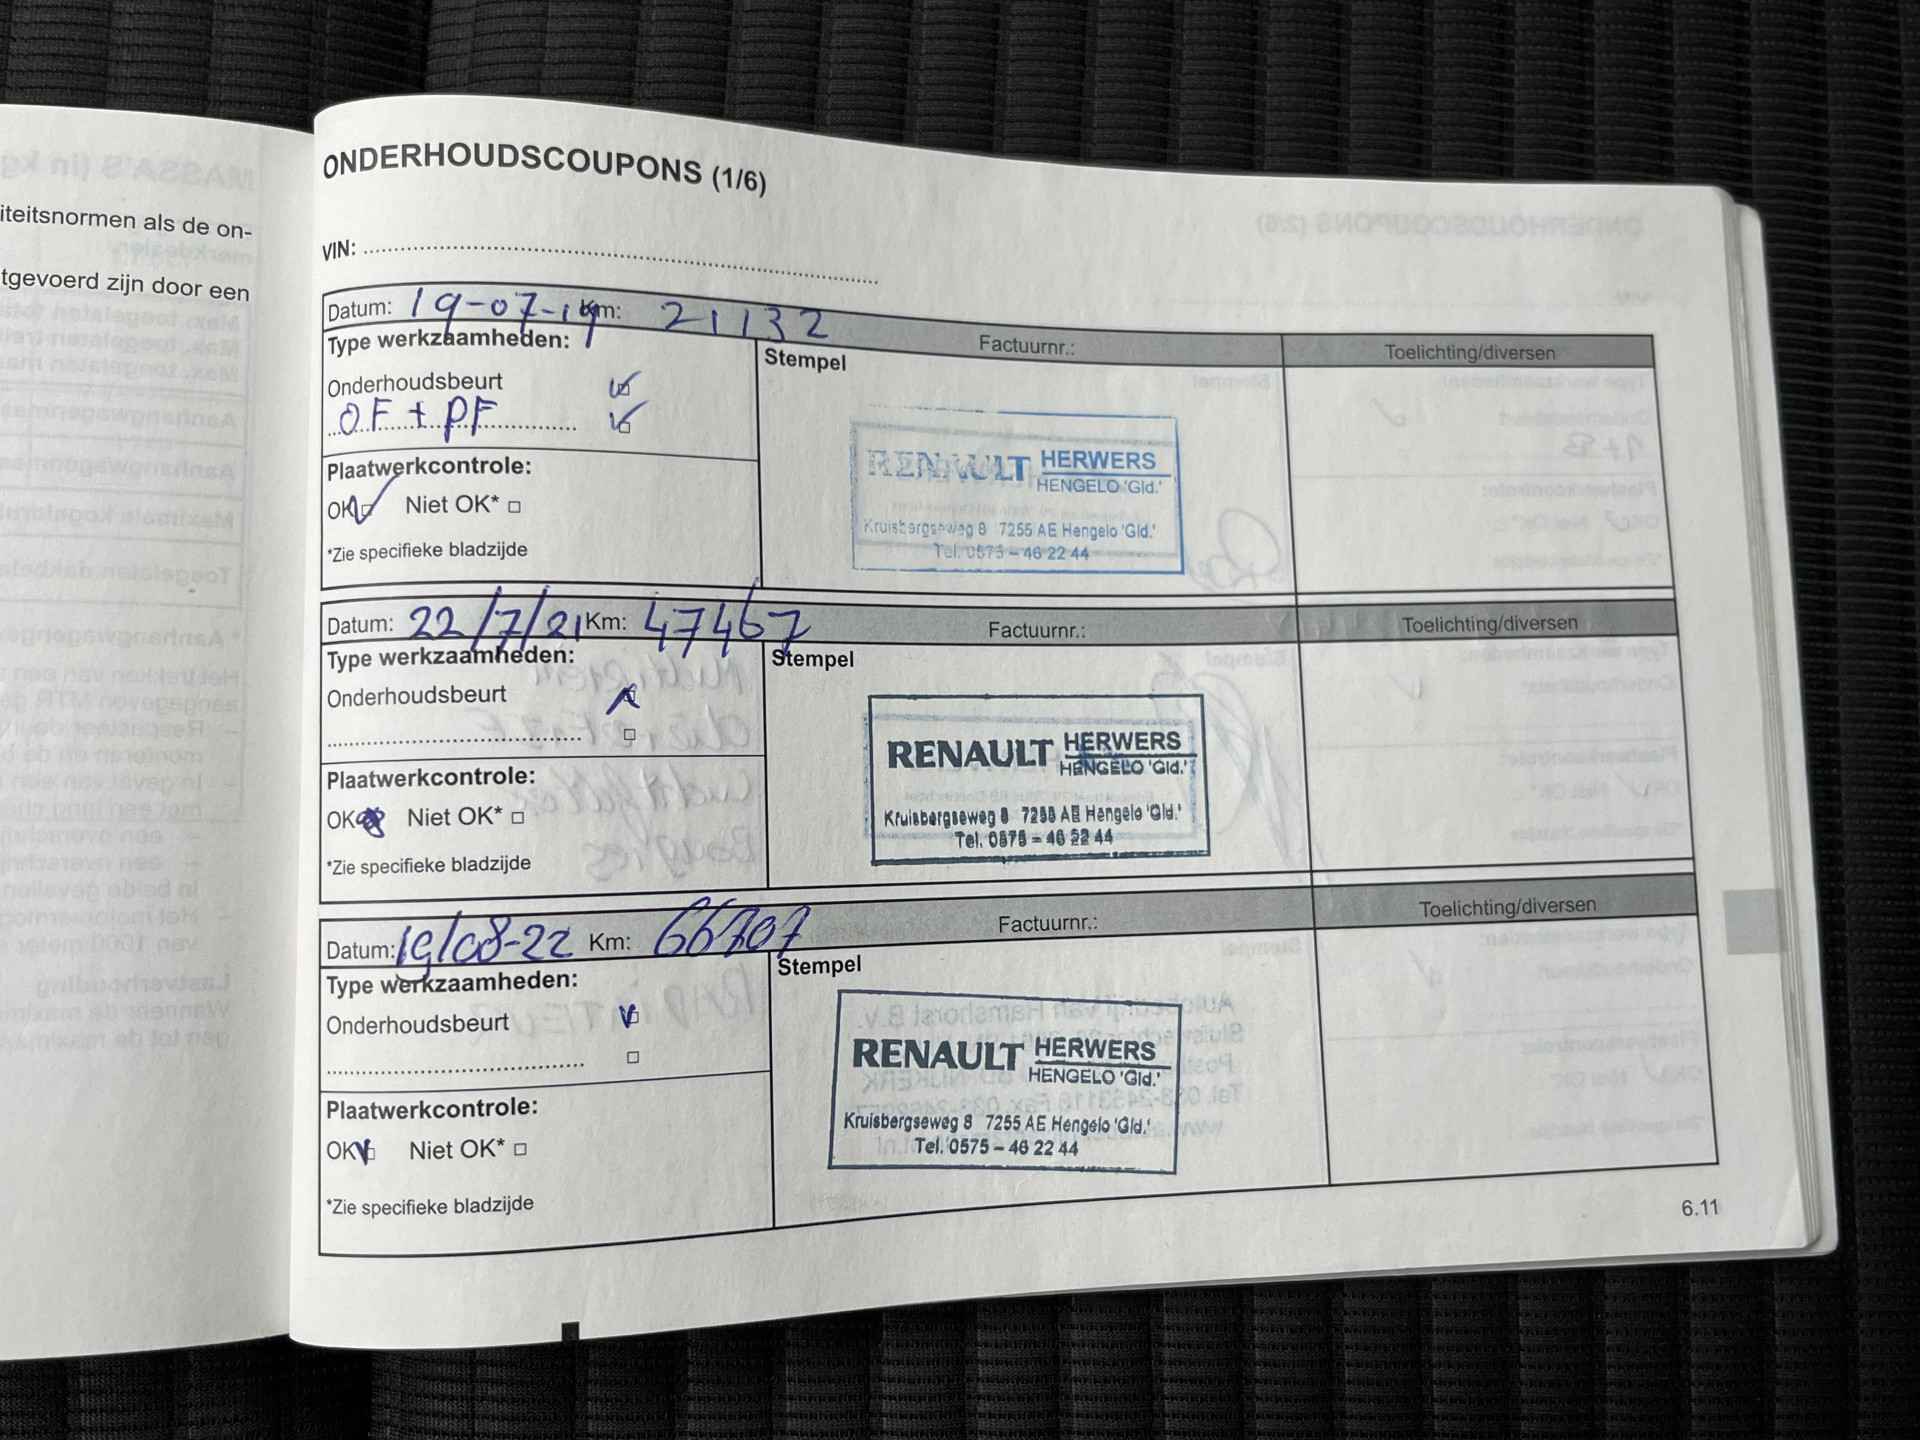 MASSA'S (in kg
iteitsnormen als de on-
tgevoerd zijn door een
ONDERHOUDSCOUPONS (1/6)
VIN:
Datum: 19-07-19 Km: 21132 Factuurnr.: Toelichting/diversen
Type werkzaamheden: Stempel
Onderhoudsbeurt
OF + PF
Plaatwerkcontrole:
OK Niet OK*
*Zie specifieke bladzijde
RENAULT HERWERS
HENGELO 'Gld.'
Kruisbergseweg 8 7255 AE Hengelo 'Gld.'
Tel. 0575 – 46 22 44
Datum: 22/7/21 Km: 47467 Factuurnr.: Toelichting/diversen
Type werkzaamheden: Stempel
Onderhoudsbeurt
Plaatwerkcontrole:
OK Niet OK*
*Zie specifieke bladzijde
RENAULT HERWERS
HENGELO 'Gld.'
Kruisbergseweg 8 7255 AE Hengelo 'Gld.'
Tel. 0575 – 46 22 44
Datum: 19/08-22 Km: 66707 Factuurnr.: Toelichting/diversen
Type werkzaamheden: Stempel
Onderhoudsbeurt
Plaatwerkcontrole:
OK Niet OK*
*Zie specifieke bladzijde
RENAULT HERWERS
HENGELO 'Gld.'
Kruisbergseweg 8 7255 AE Hengelo 'Gld.'
Tel. 0575 – 46 22 44
6.11